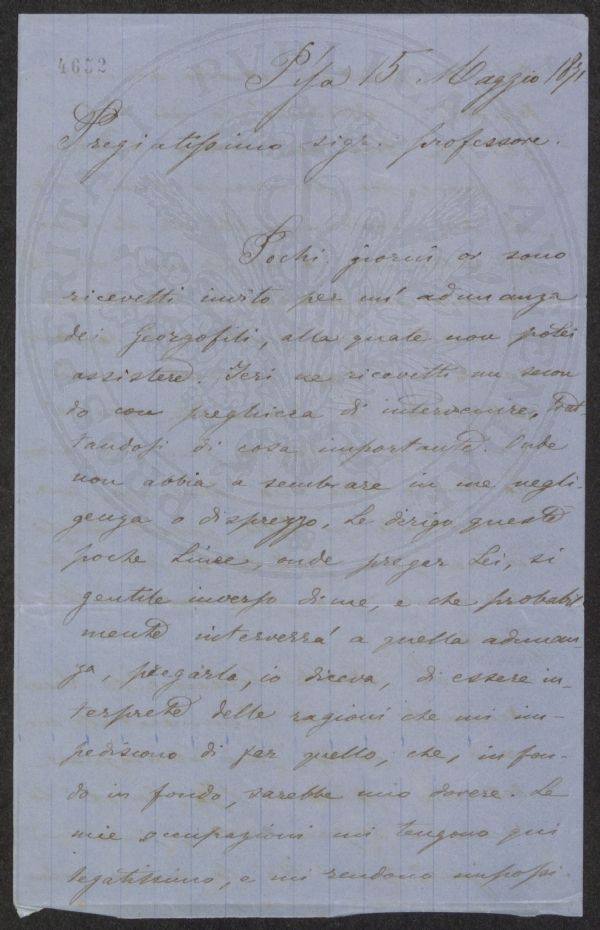 4652
Pisa 15 Maggio 1871
Pregiatissimo sigr. professore.
Pochi giorni or sono
ricevetti invito per un' adunanza
dei Georgofili, alla quale non potei
assistere. Ieri ne ricevetti un secon
do con preghiera di intervenire, trat-
tandosi di cosa importante. Onde
non abbia a sembrare in me negli-
genza o disprezzo, Le dirigo queste
poche linee, onde pregar Lei, si
gentile inverso di me, e che probabil-
mente interverrà a quella adunan-
za, pregarla, io diceva, di essere in-
terprete delle ragioni che mi im-
pediscono di far quello, che, in fon-
do in fondo, sarebbe mio dovere. Le
mie occupazioni mi tengono qui
legatissimo, e mi rendono impossi-